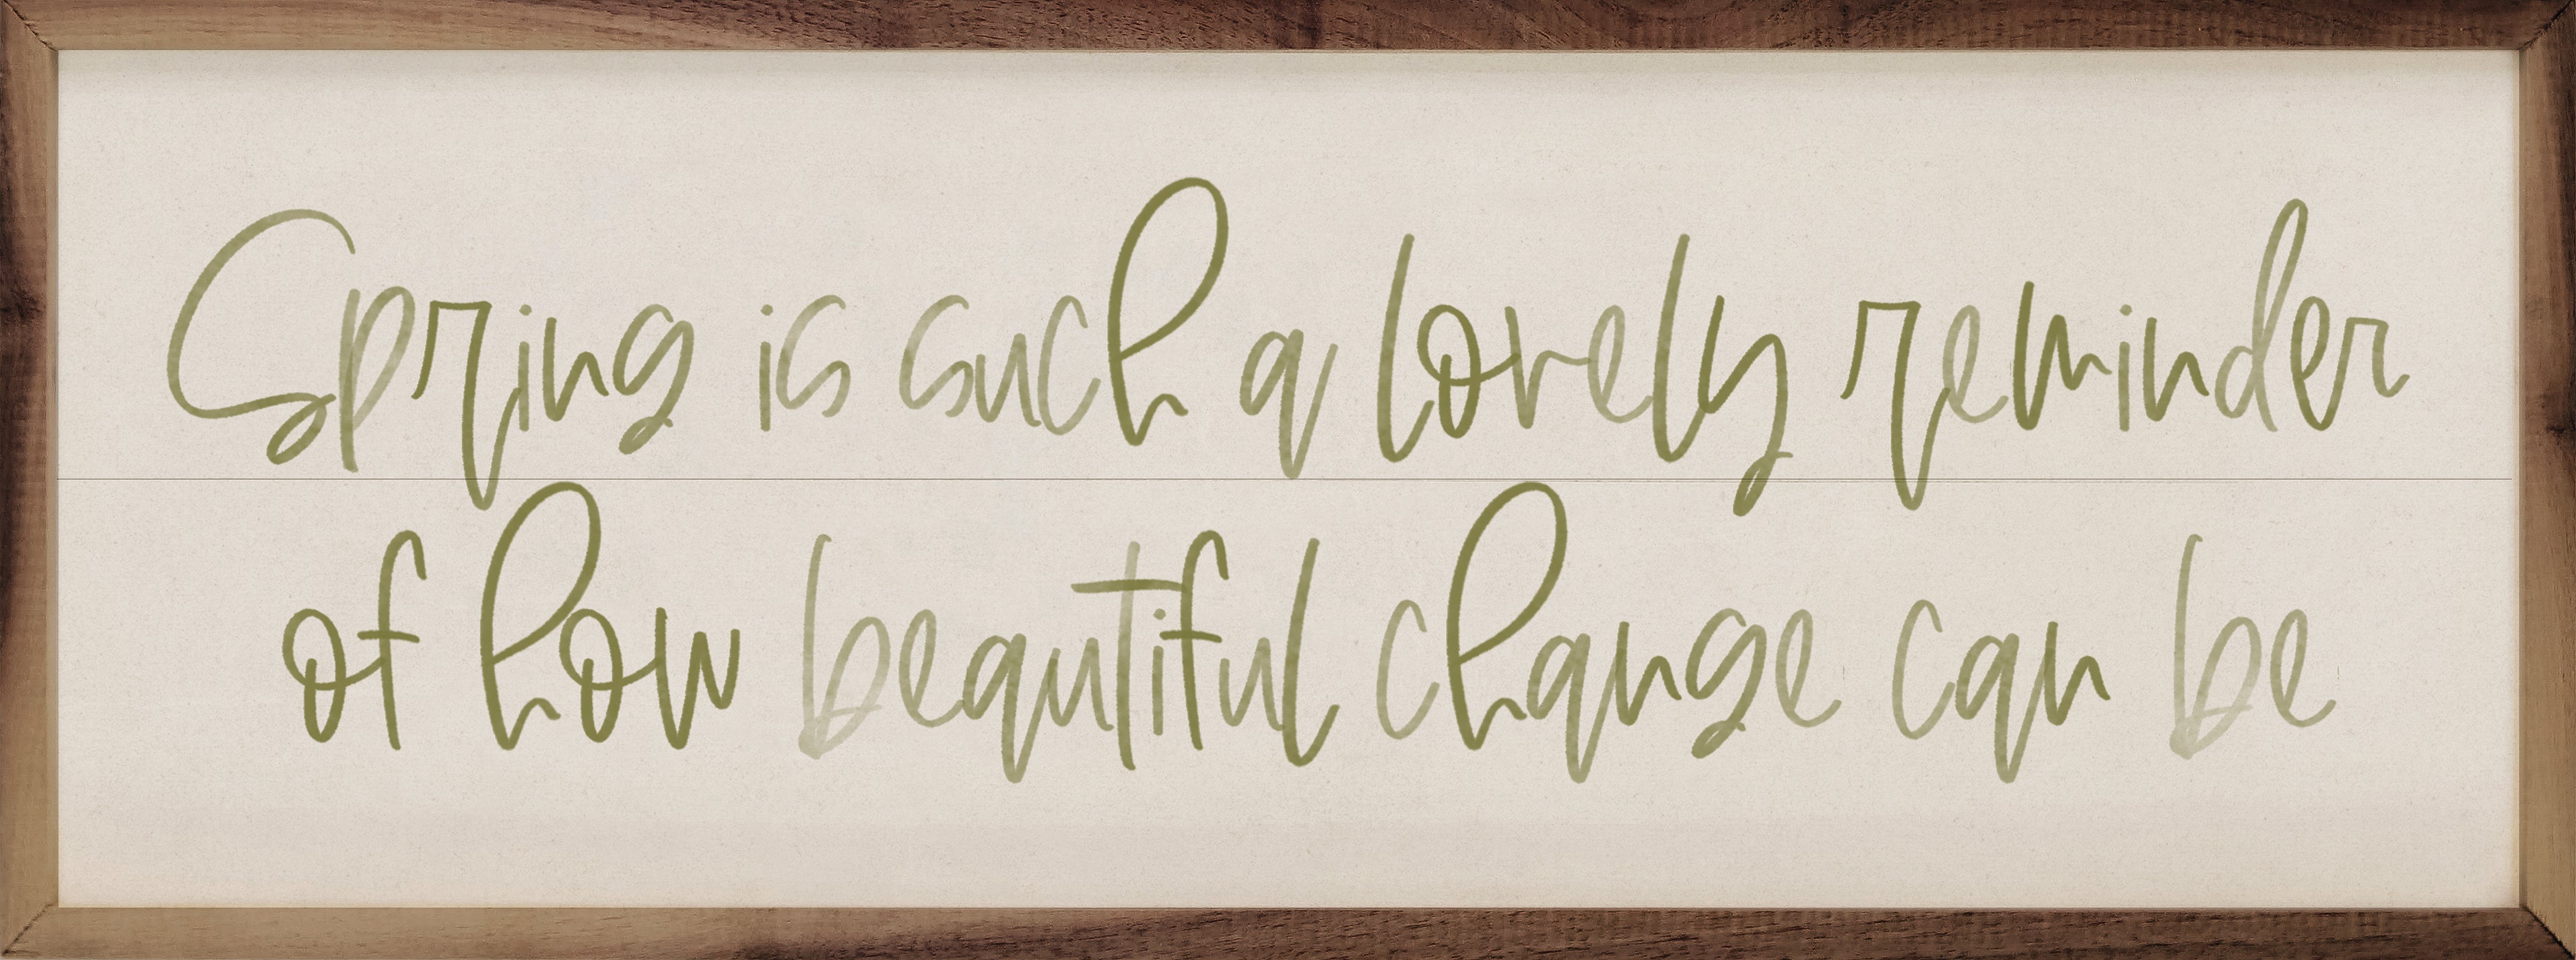 Spring is such a lovely reminder
of how beautiful change can be